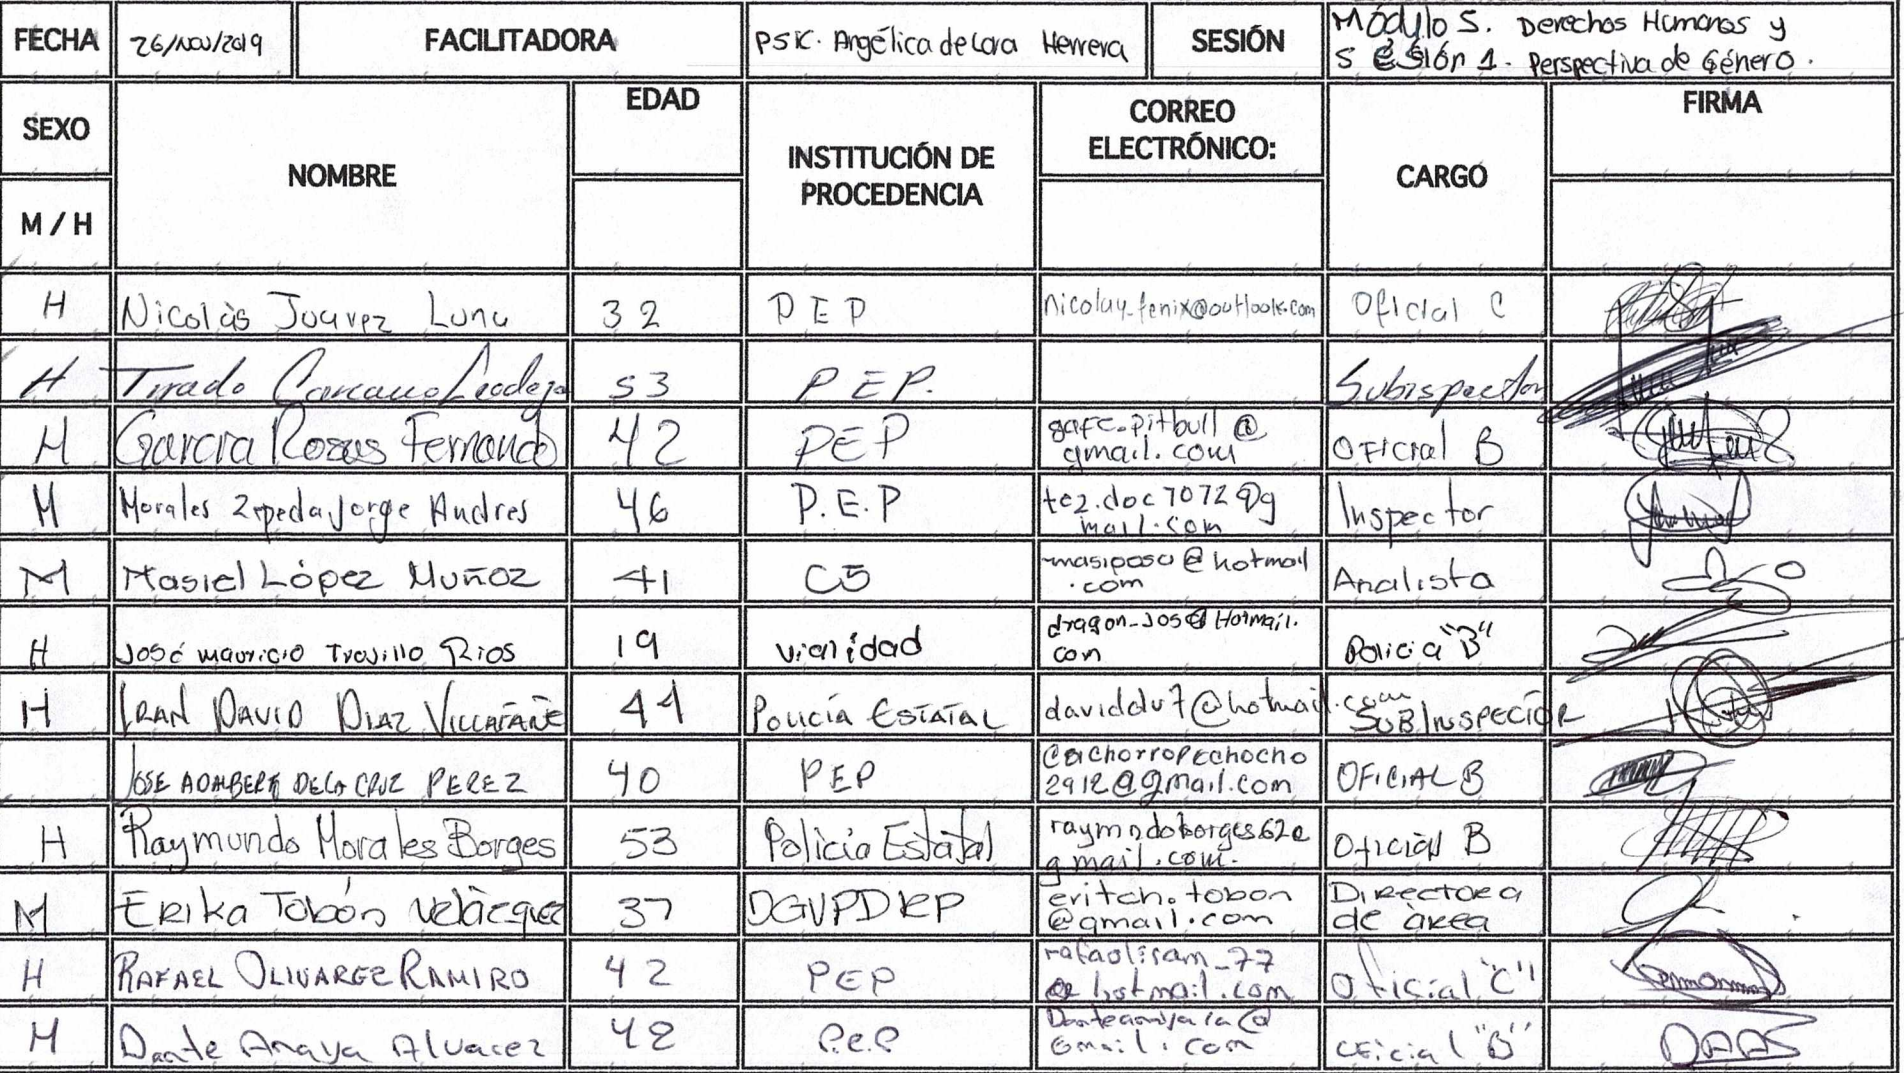 FECHA 26/NOV/2019 FACILITADORA PSIC. Angélica de Lara Herrera SESIÓN Módulo 5. Derechos Humanos y
Sesión 1. Perspectiva de Género.
SEXO
M / H
NOMBRE
EDAD
INSTITUCIÓN DE
PROCEDENCIA
CORREO
ELECTRÓNICO:
CARGO
FIRMA
H Nicolàs Juarez Luna 32 PEP nicolay_fenix@outlook.com Oficial C
H Tirado 53 PEP. Subispector
H Garcia Rosas Fernando 42 PEP gafe_pitbull@
gmail.com Oficial B
M Morales Zepeda Jorge Andres 46 P.E.P tez.doc7072@g
mail.com Inspector
M Masiel López Muñoz 41 C5 masiposa@hotmail
.com Analista
H José mauricio Trujillo Rios 19 vialidad dragon_Jos@Hotmail.
com Policia "B"
H IRAN DAVID DIAZ VILLAFAÑE 44 POLICÍA ESTATAL daviddv7@hotmail.com SUB/INSPECTOR
JOSE DE LA CRUZ PEREZ 40 PEP cachorropechocho
2912@gmail.com OFICIAL B
H Raymundo Morales Borges 53 Policía Estatal raymndoborges62@
gmail.com. Oficial B
M Erika Tobón Velázquez 37 DGVPDRP eritch.tobon
@gmail.com Directora
de àrea
H RAFAEL OLIVAREZ RAMIRO 42 PEP rafaoliram_77
@hotmail.com Oficial "C"
M Dante Anaya Alvarez 42 P.e.P
Gmail.com Oficial "B" DAAS